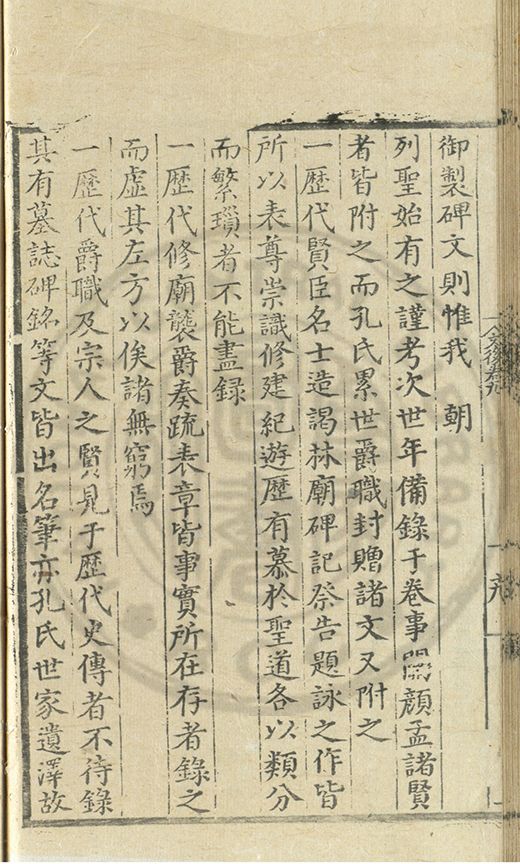 御製碑文則惟我 朝
列聖始有之謹考次世年備錄于卷事關顏孟諸賢
者皆附之而孔氏累世爵職封贈諸文又附之
一歷代賢臣名士造謁林廟碑記祭告題詠之作皆
所以表尊崇識修建紀遊歷有慕於聖道各以類分
而繁瑣者不能盡錄
一歷代修廟襲爵奏疏表章皆事實所在存者錄之
而虛其左方以俟諸無窮焉
一歷代爵職及宗人之賢見于歷代史傳者不待錄
其有墓誌碑銘等文皆出名筆亦孔氏世家遺澤故